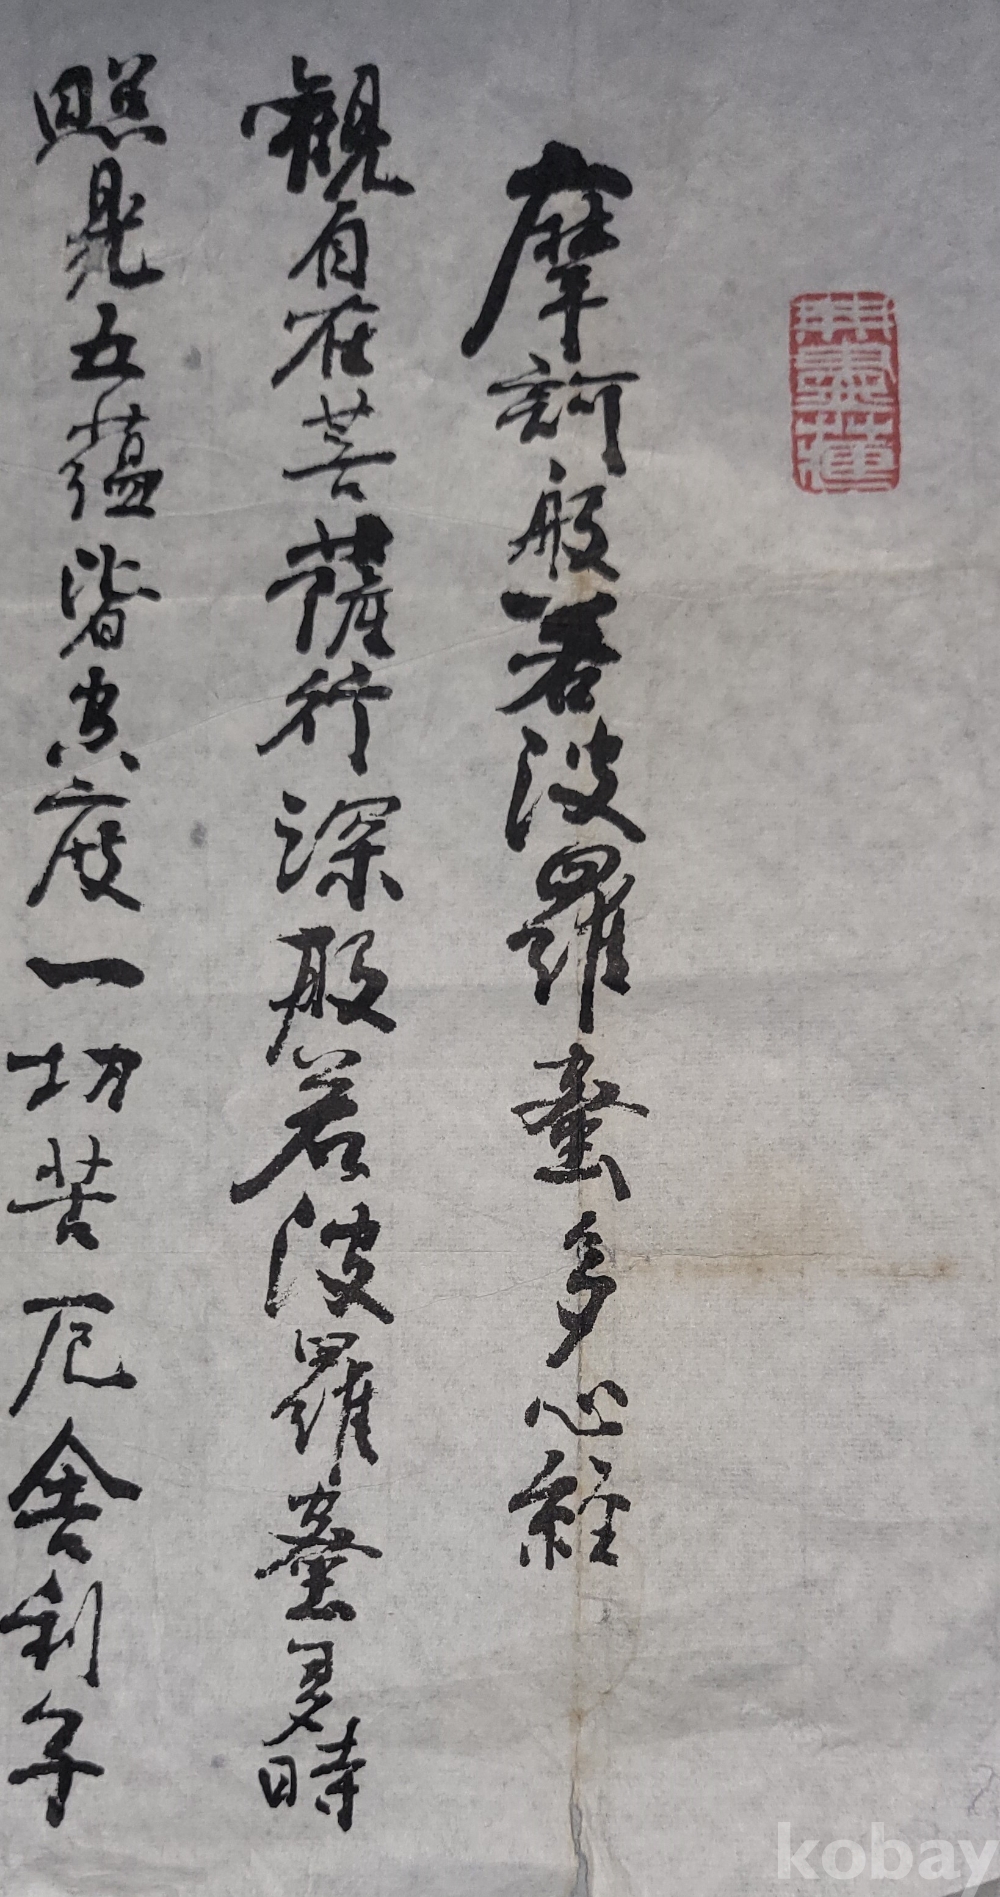 摩訶般若波羅蜜多心経
觀自在菩薩行深般若波羅蜜多時
照見五蘊皆空度一切苦厄舍利子
kobay